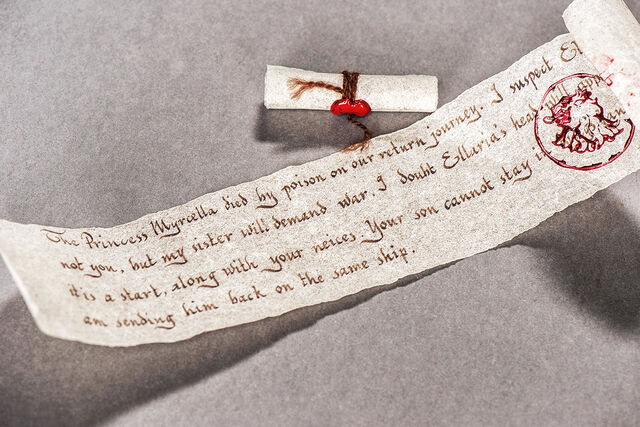 The Princess Myrcella died by poison on our return journey. I suspect El
not you, but my sister will demand war. I doubt Ellaria's head will
it is a start, along with your neices. Your son cannot stay
am sending him back on the same ship.